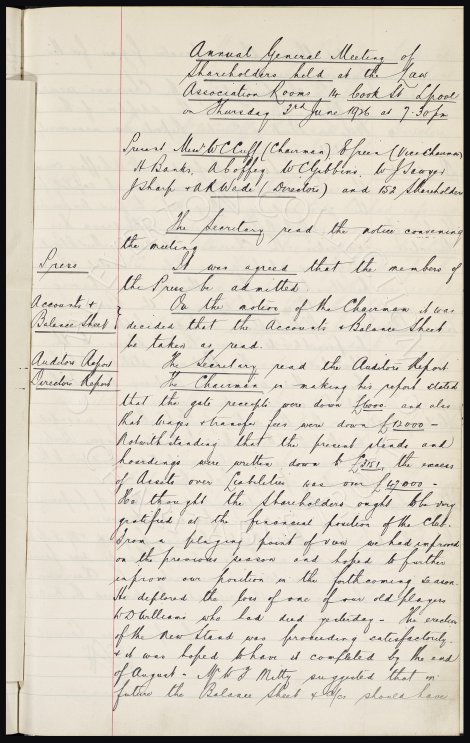 Annual General Meeting of
Shareholders held at the Law
Association Rooms 14 Cook St Lpool
on Thursday 3rd June 1926 at 7.30 pm
Present Messrs W C Cuff (Chairman) E Green (Vice Chairman)
H Banks, A Coffey W C Gibbins, W J Sawyer
J Sharp & A R Wade (Directors) and 152 Shareholders
The Secretary read the notice convening
the meeting
Press
It was agreed that the members of
the Press be admitted.
Accounts &
Balance Sheet
On the motion of the Chairman it was
decided that the Accounts & Balance Sheet
be taken as read.
Auditors Report
The Secretary read the Auditors Report
Directors Report
The Chairman in making his report stated
that the gate receipts were down and also
that Wages & transfer fees were down £12000 –
Notwithstanding that the present stands and
hoardings were written down to £3151, the excess
of Assets over Liabilities was over £47000 –
He thought the Shareholders ought to be very
gratified at the financial position of the Club.
From a playing point of view we had improved
on the previous season and hoped to further
improve our position in the forthcoming season.
He deplored the loss of one of our old players
W D Williams who had died yesterday – The erection
of the New Stand was proceeding satisfactorily.
& it was hoped to have it completed by the end
of August – Mr W J Mitty suggested that in
future the Balance Sheet & a/cs should have